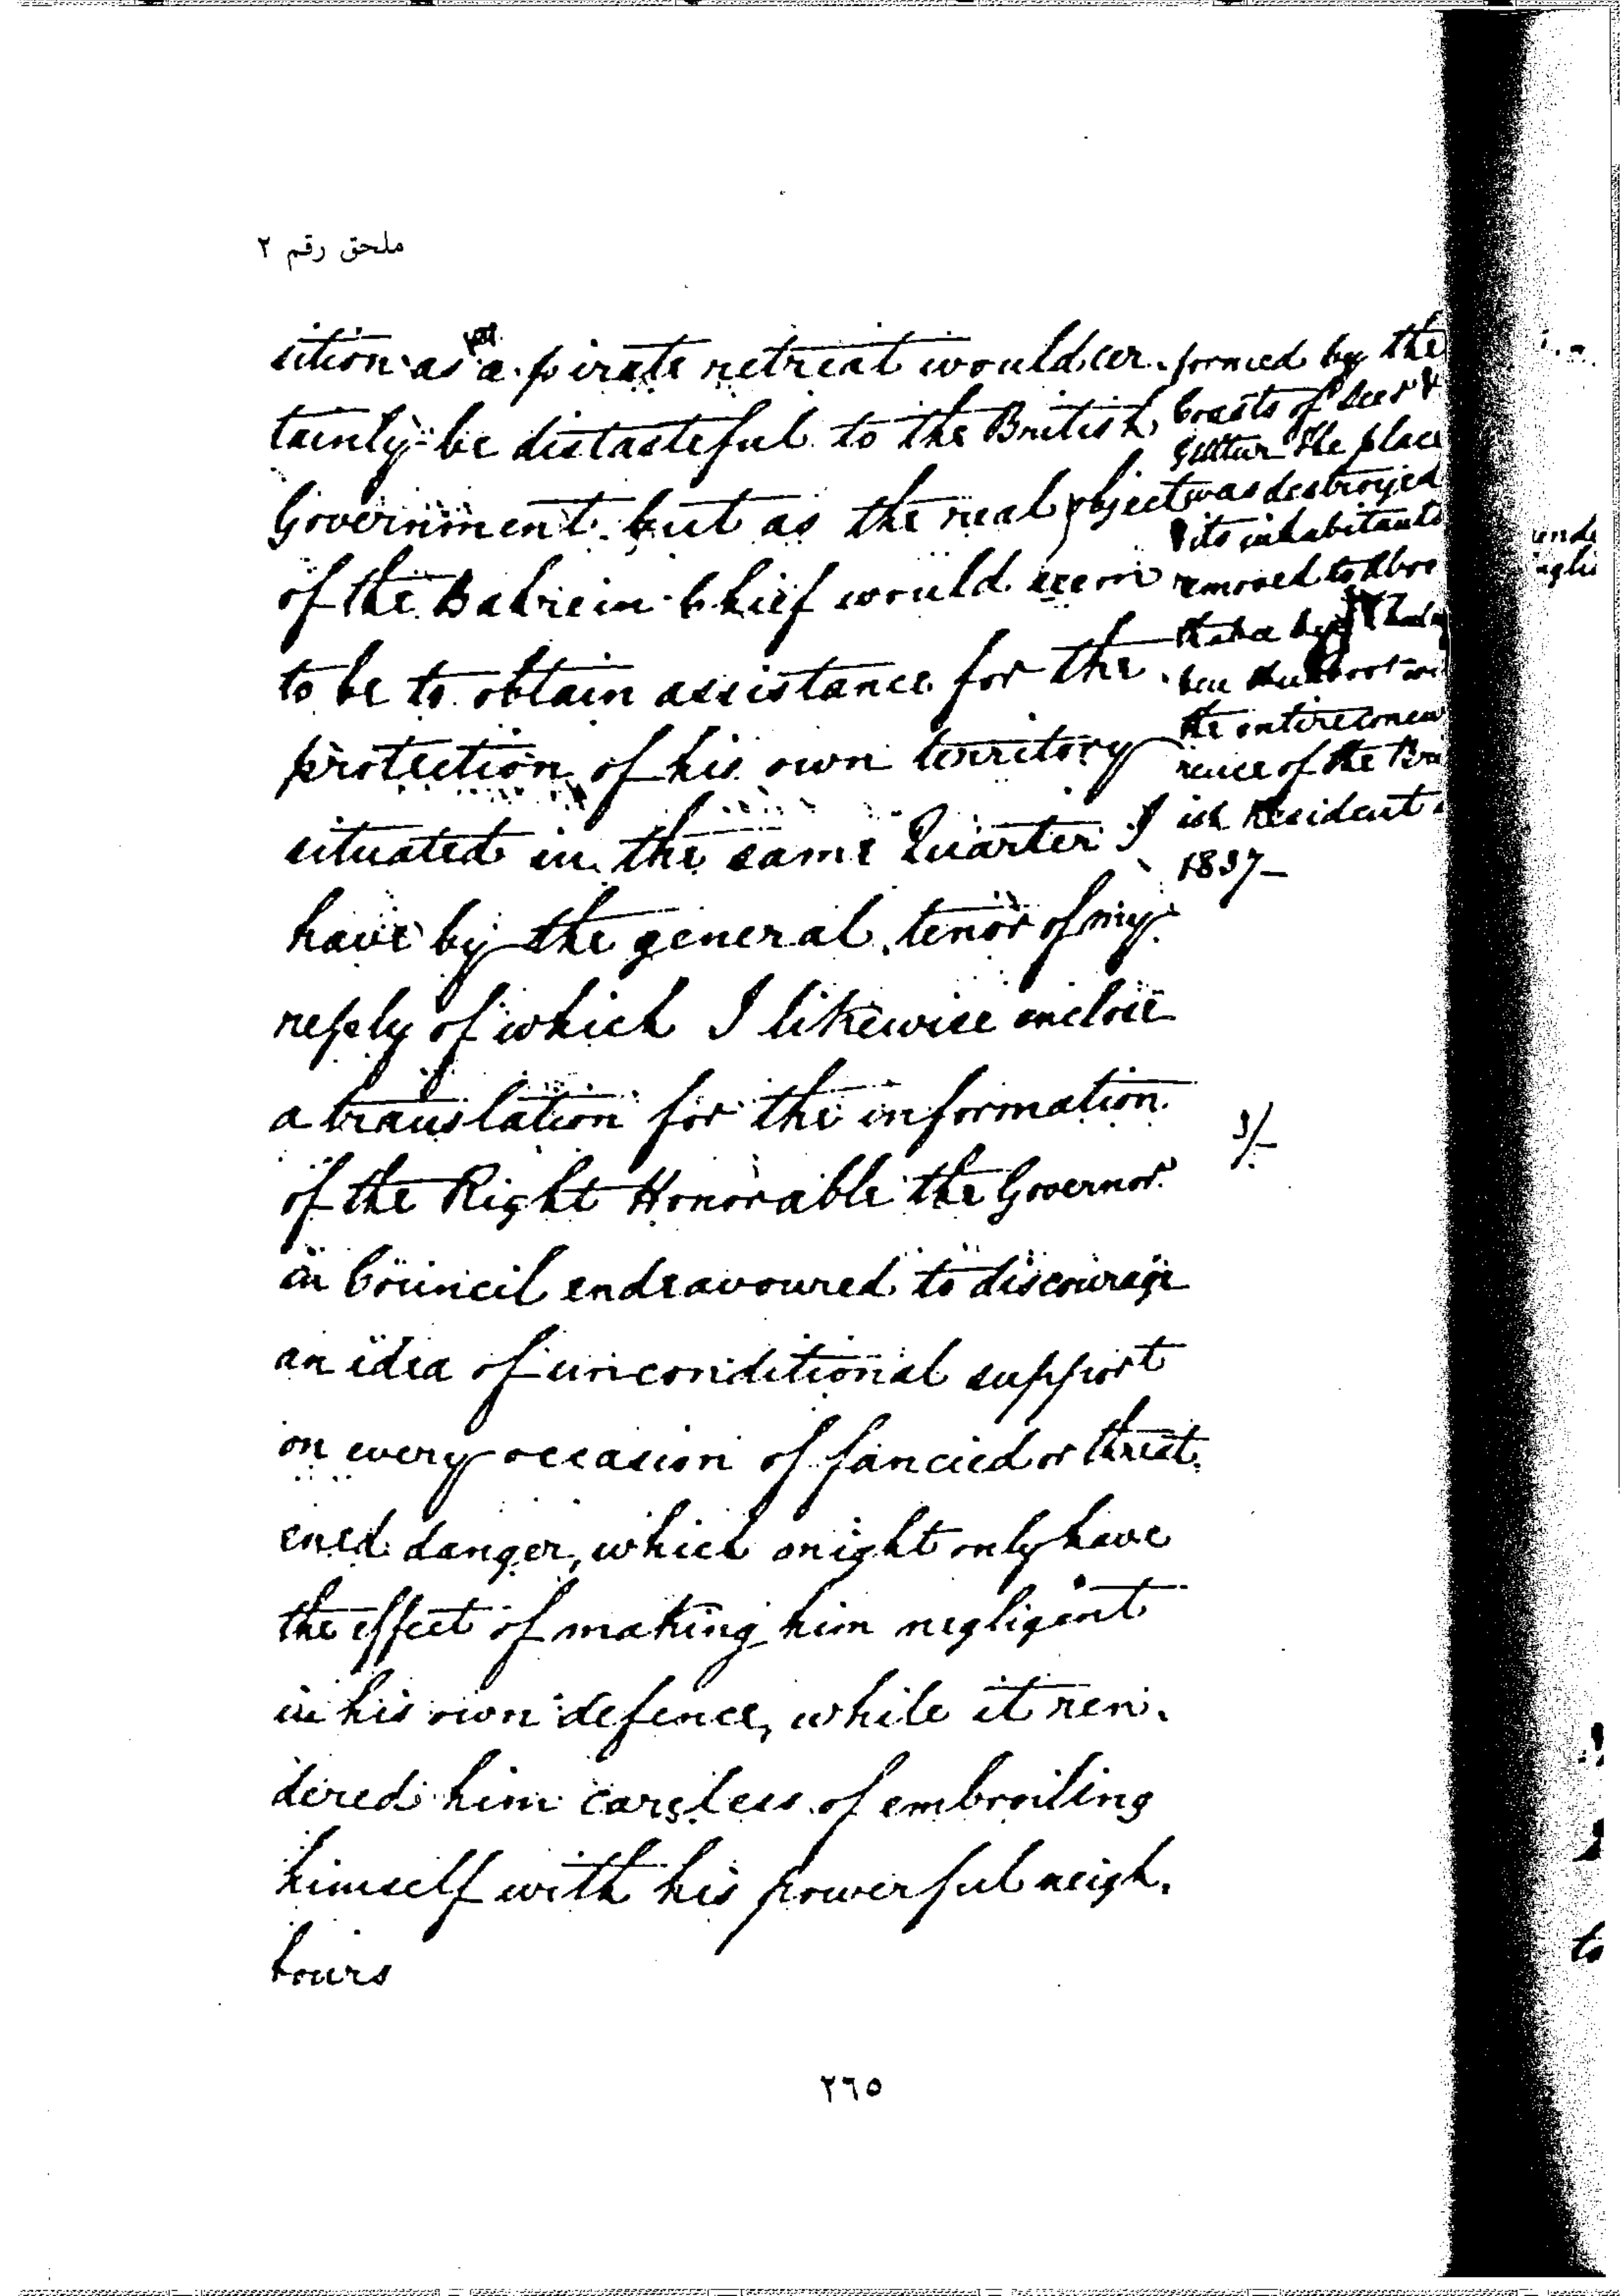 ملحق رقم ٢
sition as a pirate retreat would cer-
tainly be distasteful to the British
Government but as the real object
of the Bahrein Chief would seem
to be to obtain assistance for the
protection of his own territory
situated in the same Quarter I
have by the general tenor of my
reply of which I likewise inclose
a translation for the information
of the Right Honorable the Governor
in Council endeavoured to discourage
an idea of unconditional support
on every occasion of fancied or threat-
ened danger, which might only have
the effect of making him negligent
in his own defence, while it ren-
dered him careless of embroiling
himself with his powerful neigh-
bours
formed by the
coasts of &
Guttur the place
was destroyed
its inhabitants
removed to
the entire concur
rence of the Bri
ish Resident
1837-
3/-
٢٦٥